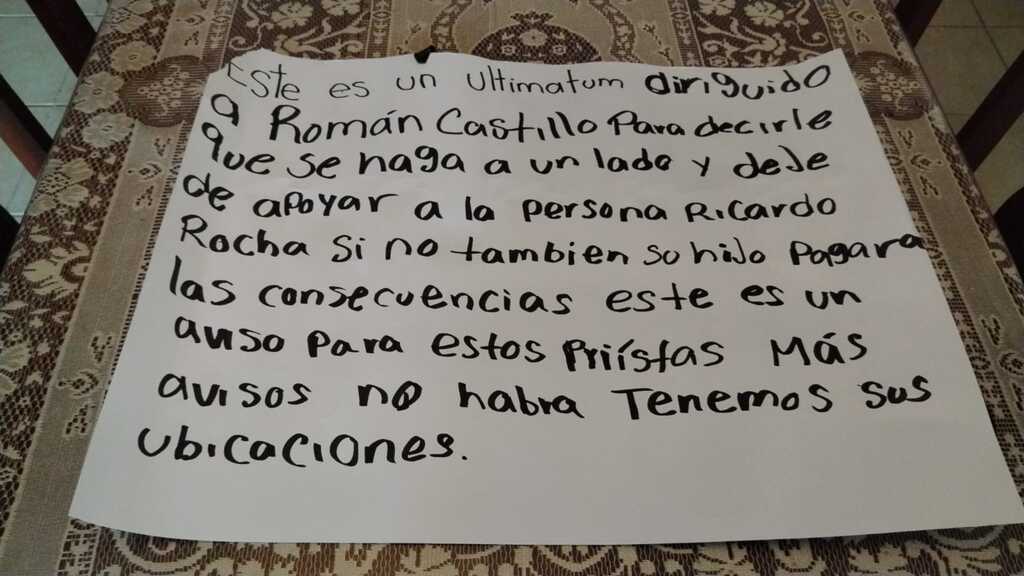 Este es un ultimatum diriguido
a Román Castillo Para decirle
que se haga a un lado y deje
de apoyar a la persona Ricardo
Rocha Si no tambien su hijo Pagara
las consecuencias este es un
aviso para estos Priístas Más
avisos no habra Tenemos sus
ubicaciones.